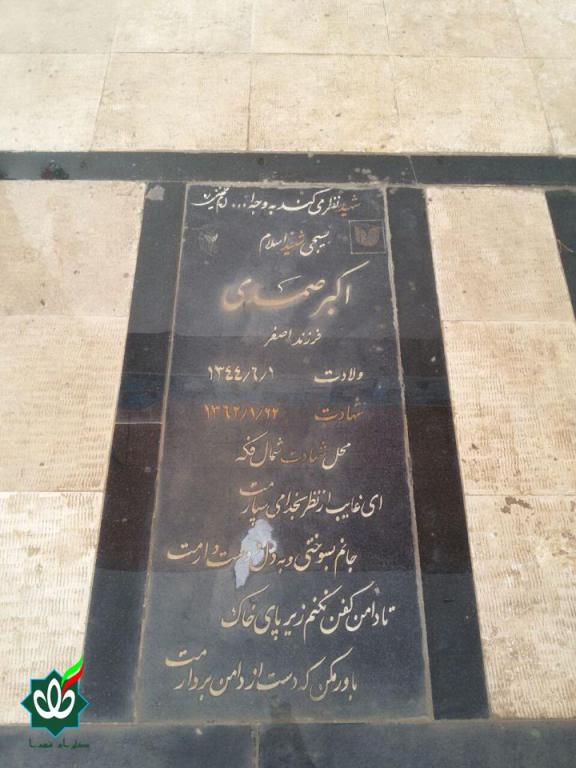 شهید نظر می کند به وجه الله... امام خمینی ره
بسیجی شهید اسلام
اکبر صمدی
فرزند اصغر
ولادت ۱۳۴۴/۶/۱
شهادت ۱۳۶۲/۱/۲۲
محل شهادت شمال فکه
ای غایب از نظر بخدا می سپارمت
جانم بسوختی و به دل دوست دارمت
تا دامن کفن نکشم زیر پای خاک
باور مکن که دست از دامن بردارمت
گلزار شهدا